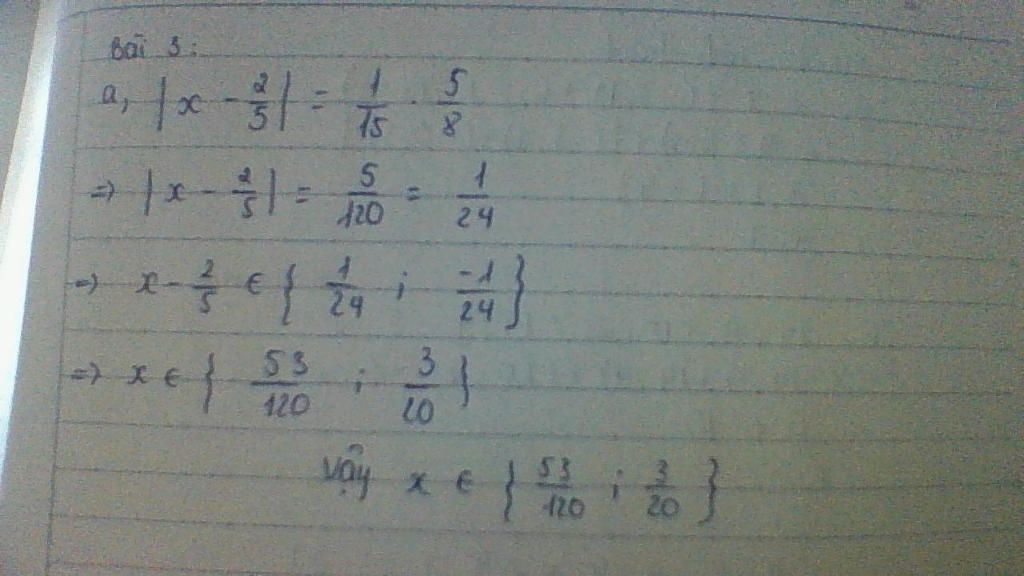 Bài 3:
a, |x - 2/5| = 1/15 . 5/8
=> |x - 2/5| = 5/120 = 1/24
=> x - 2/5 ∈ { 1/24 ; -1/24 }
=> x ∈ { 53/120 ; 3/20 }
Vậy x ∈ { 53/120 ; 3/20 }